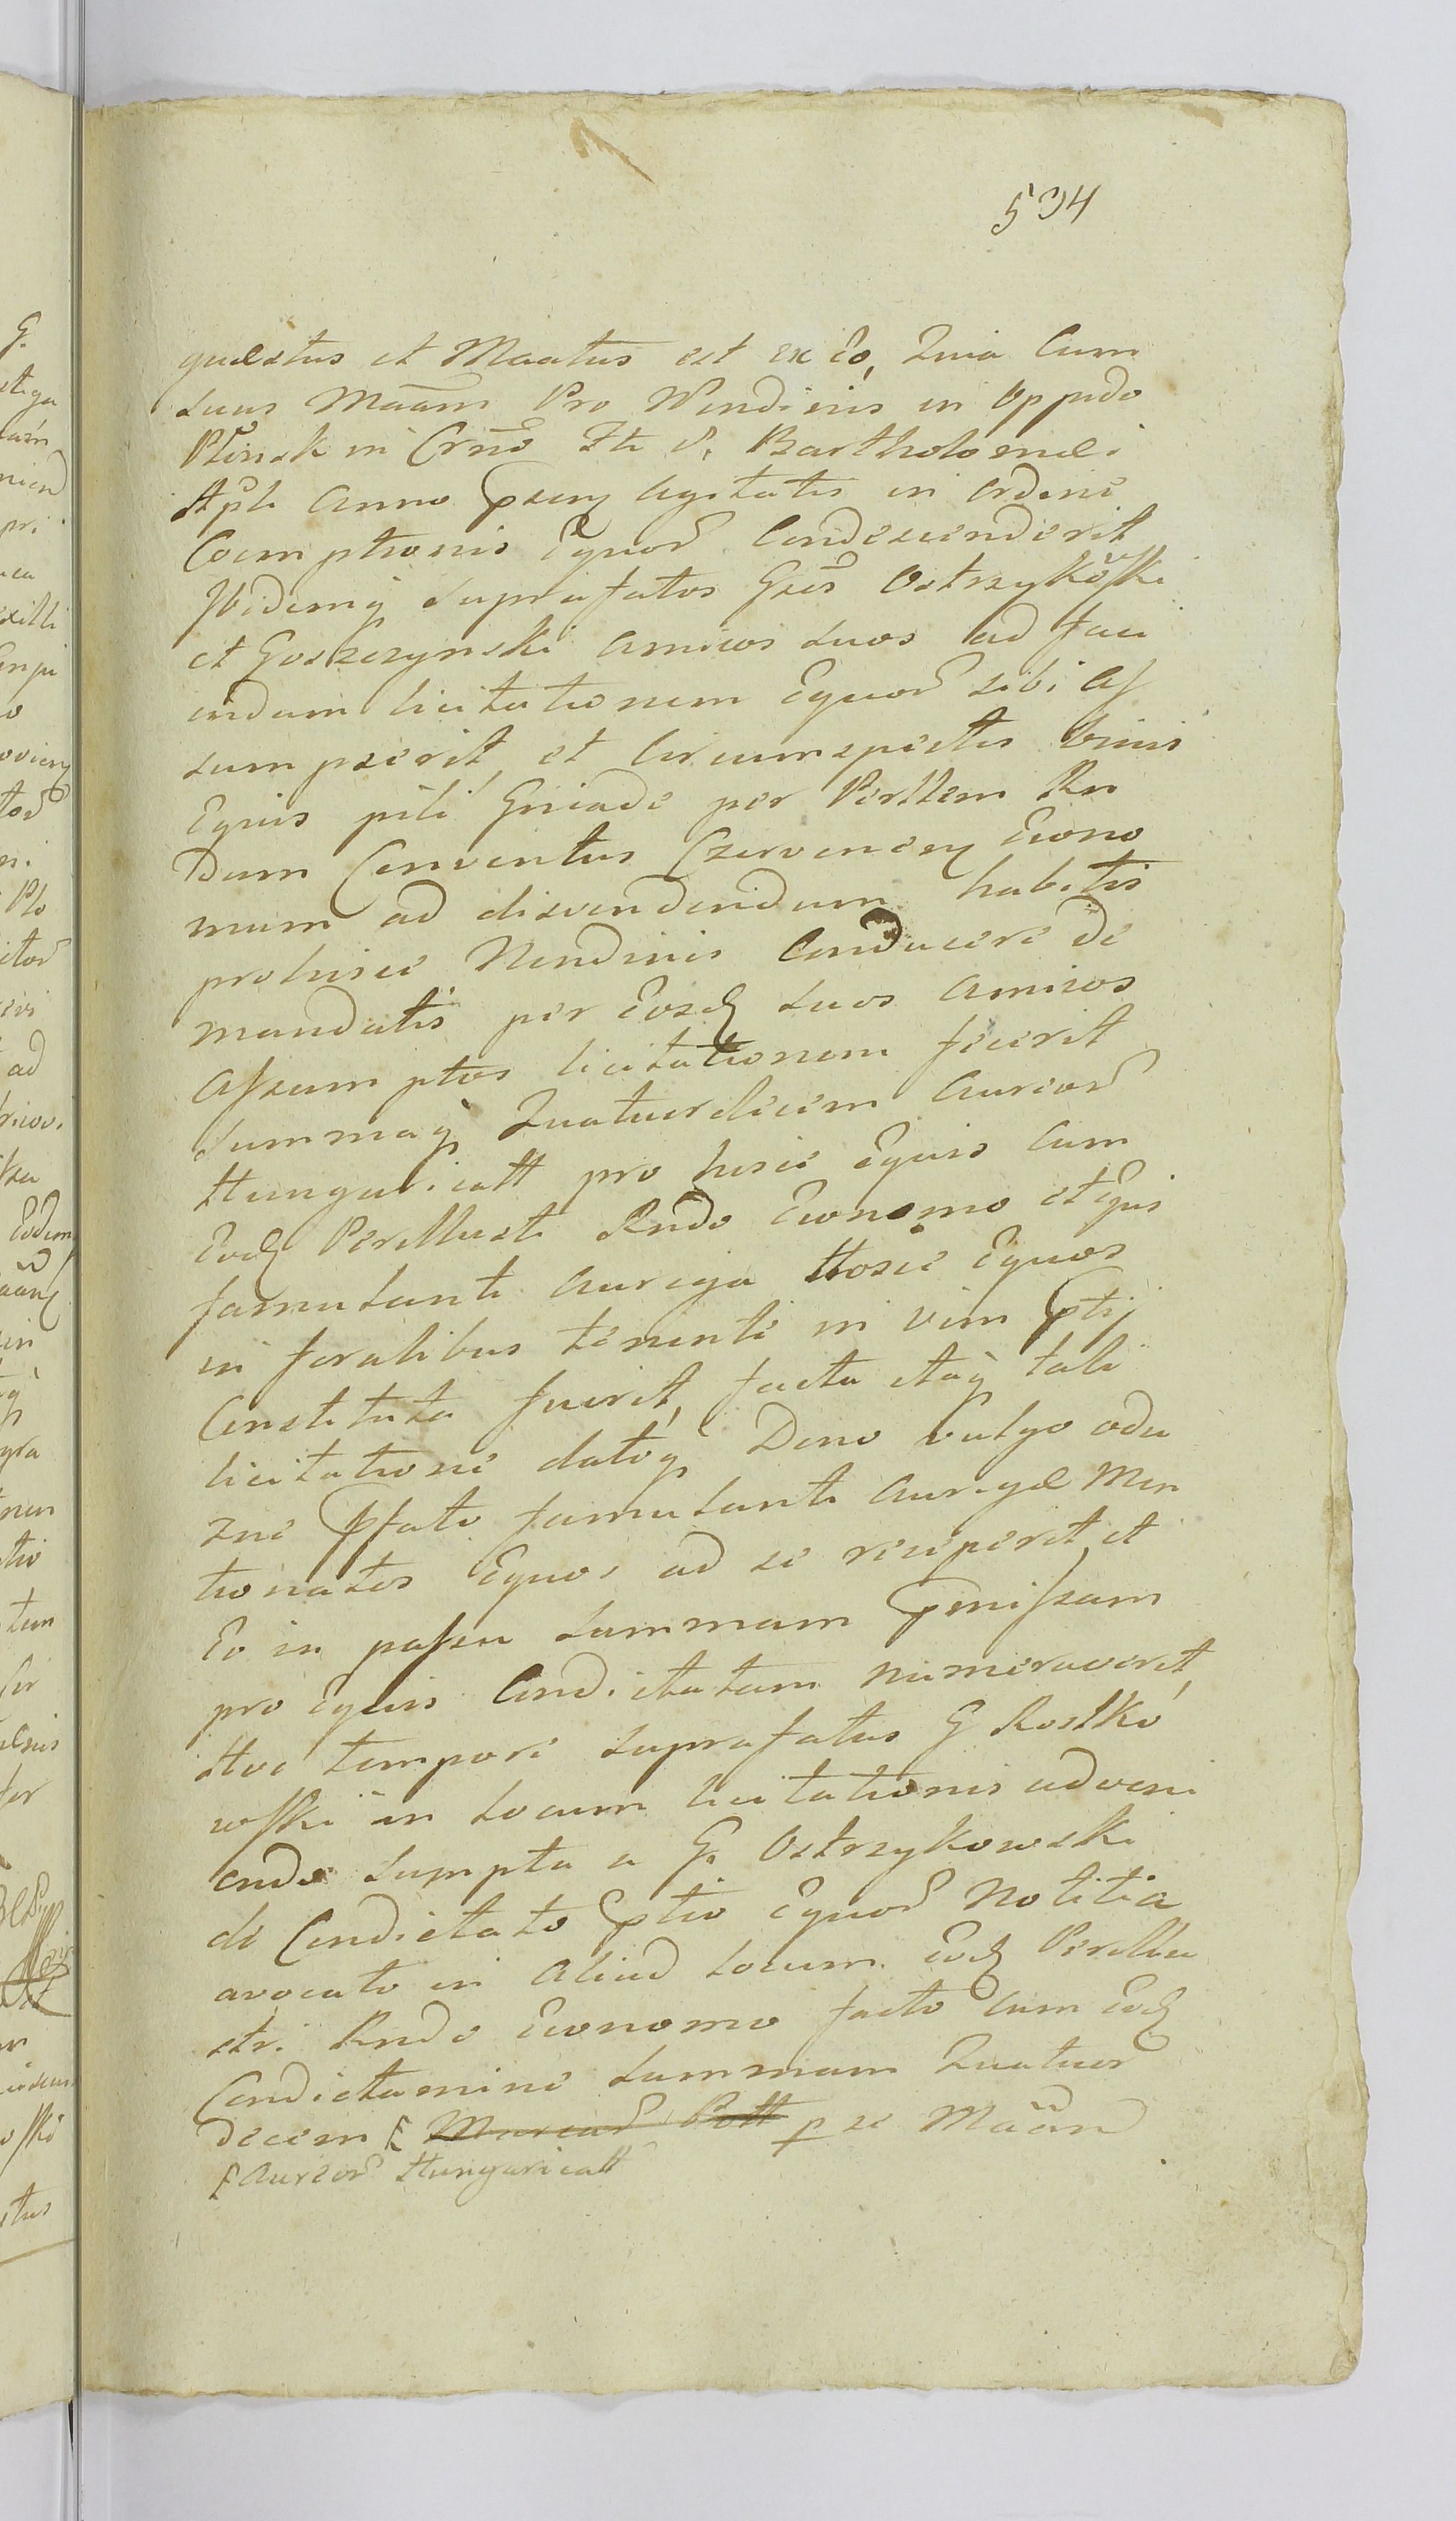 504
quæstus et Maãtus est ex Eo, Quia Cum
suus Maãm Pro Nundinis in Oppido
Płońsk in Crno Sti P. Bartholomæi
Apli Anno pseng agitatis in ordine
Coemptionis Equor Condescenderit
Ibidemq suprafatos Gsos Ostrzykowski
et Goszczynski amicos suos ad faci
endum licitationem Equor sibi as
sumpserit, et Circumspectis binis
Equis pili Gniade per Perillem Rn
dum Conventus Czervencen Econo
mum ad disvendendum habitis
prohisce Nundinis Conducere de
mandatis per Eosd suos amicos
assumptos licitationem fecerit
Summaq Quatuordecim Aureor
Hungaricall pro hisce Equis cum
Eod Perillustri Rndo Economo et Ejus
famulante auriga Hosce Equos
in foralibus tenente in vim ptij
Constituta fuerit, facta itaq tali
licitatione datoq Dono vulgo odu
zne pfato famulanti aurigæ Men
tionatos Equos ad se receperit, et
Eo in passu summam pmissam
pro Equis Condictatam numeraverit,
Hoc tempore suprafatus G Rostko
wski in Locum licitationis adveni
endo sumpta a G. Ostrzykowski
de Condictato ptio Equor Notitia
avocato in aliud Locum Eod Perillu
stri Rndo Economo facto cum Eod
Condictamine summam Quatuor
decem
p se Maãnd
Aureor Hungaricall